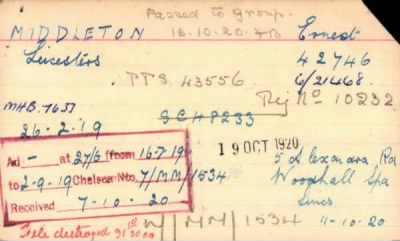 Passed to group.
MIDDLETON 16.10.20. Ernest
Leicesters 42746
PTS. 43556 6/21468.
Rej No 10232
MHB. SC48233
26-2-19
19 OCT 1920
Ad - at 27/6 (from 16-7-19
to 2-9-19 Chelsea No. 7/MM/1534
Received 7-10-20
5 Alexandra Rd
Woodhall Spa
Lincs
M/MM/1534 11-10-20
File destroyed